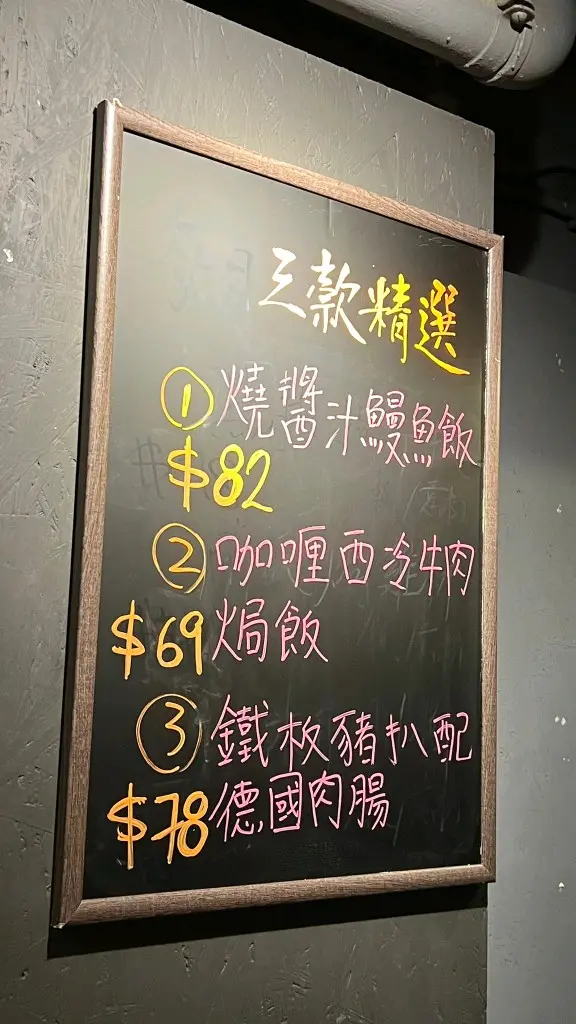 三款精選
① 燒醬汁鰻魚飯
$82
② 咖喱西冷牛肉
$69 焗飯
③ 鐵板豬扒配
$78 德國肉腸